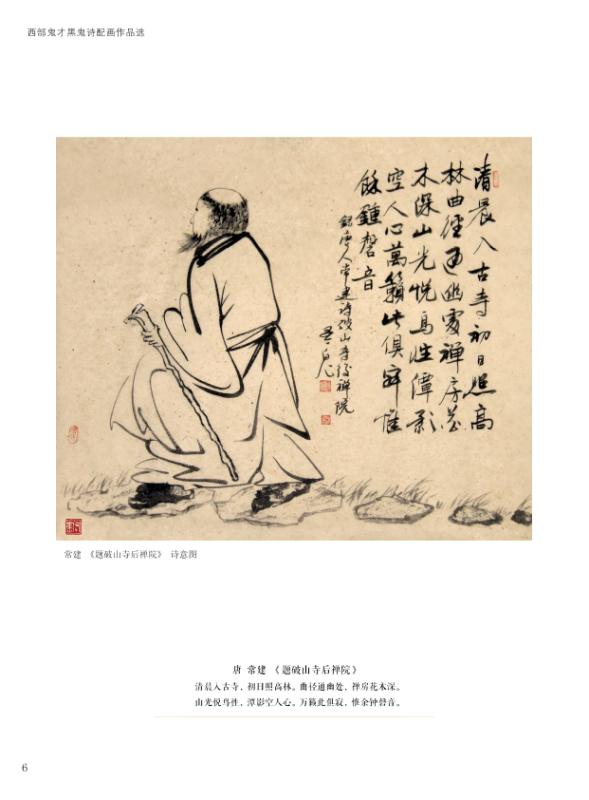 西部鬼才黑鬼诗配画作品选
清晨入古寺初日照高
林曲徑通幽處禪房花
木深山光悦鸟性潭影
空人心萬籟此俱寂惟
餘鍾磬音
錄唐人常建诗破山寺後禅院
黑鬼
常建 《题破山寺后禅院》 诗意图
唐 常建 《题破山寺后禅院》
清晨入古寺，初日照高林。曲径通幽处，禅房花木深。
山光悦鸟性，潭影空人心。万籁此俱寂，惟余钟磬音。
6